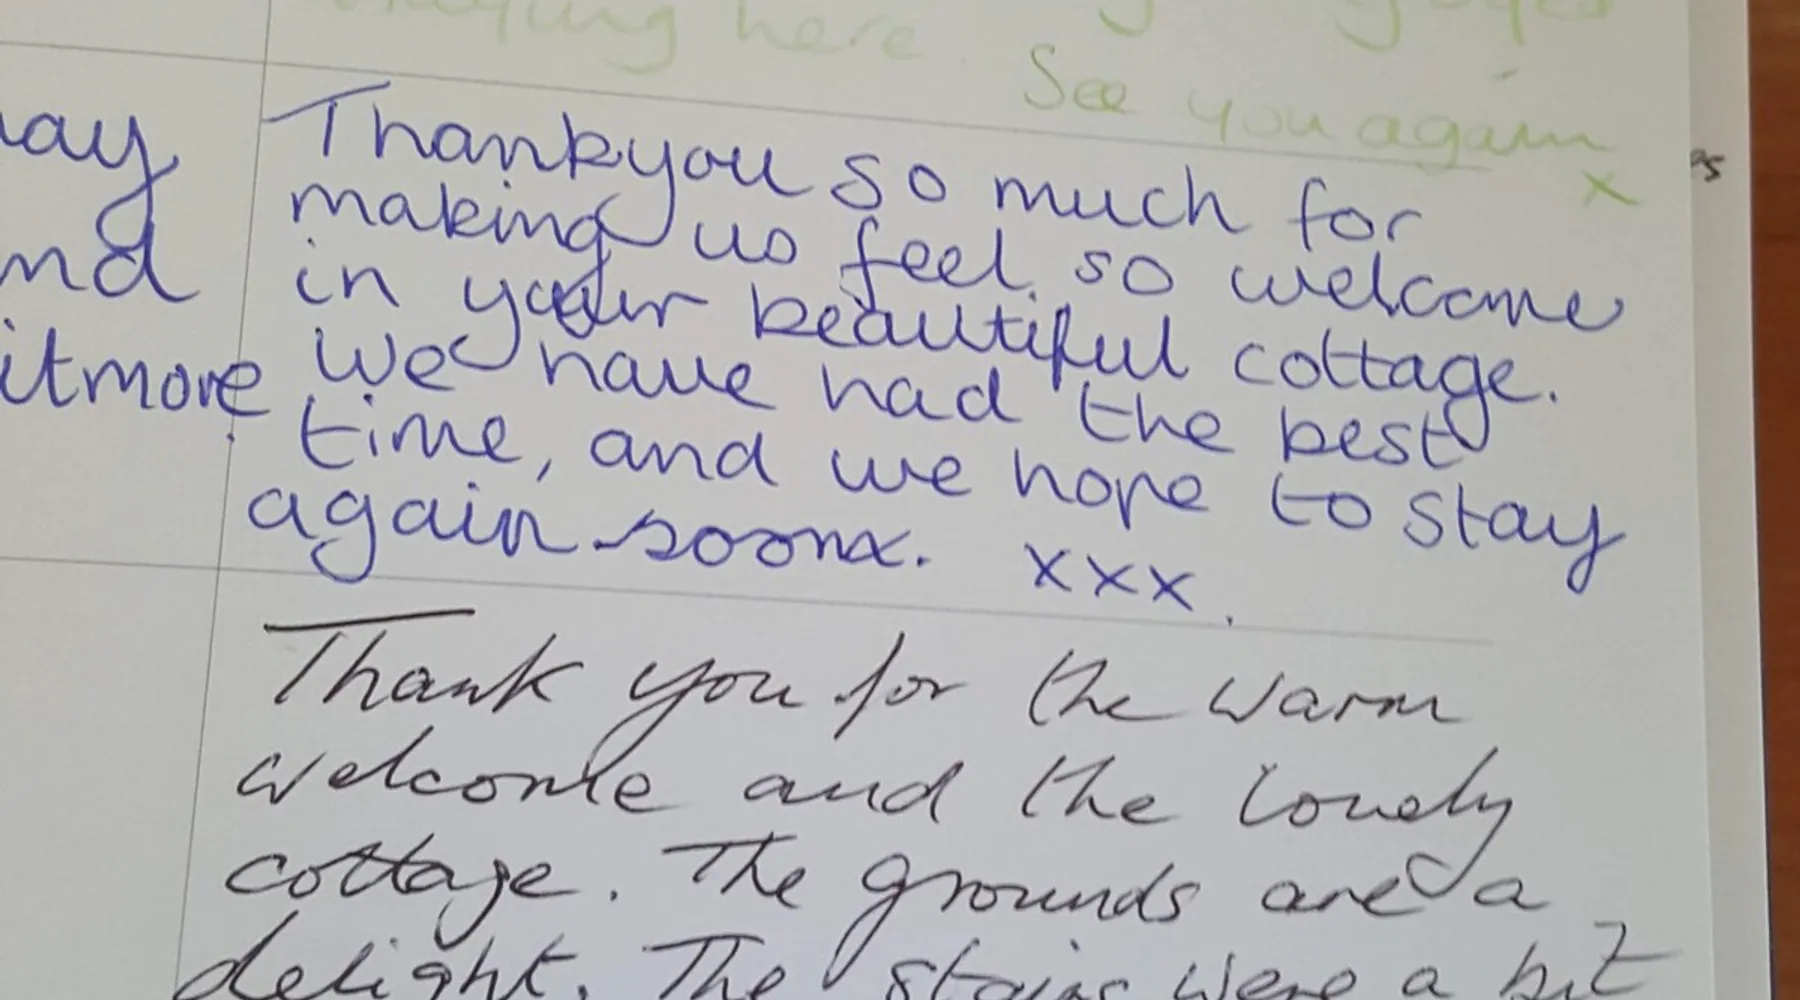 here
See you again
x
Thankyou so much for
making us feel so welcome
in your beautiful cottage.
We have had the best
time, and we hope to stay
again soonx. xxx.
nd
itmore
Thank you for the warm
welcome and the lovely
cottage. The grounds are a
delight. The stairs were a bit